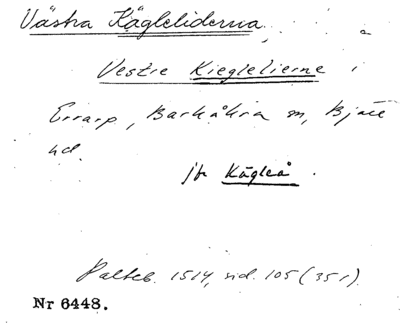 Västra Kägleliderna
Vestre Kieglelierne i
Errarp, Barkåkra sn, Bjäre
hd.
jfr Käglaå.
Palteb. 1514, sid. 105 (35r).
Nr 6448.